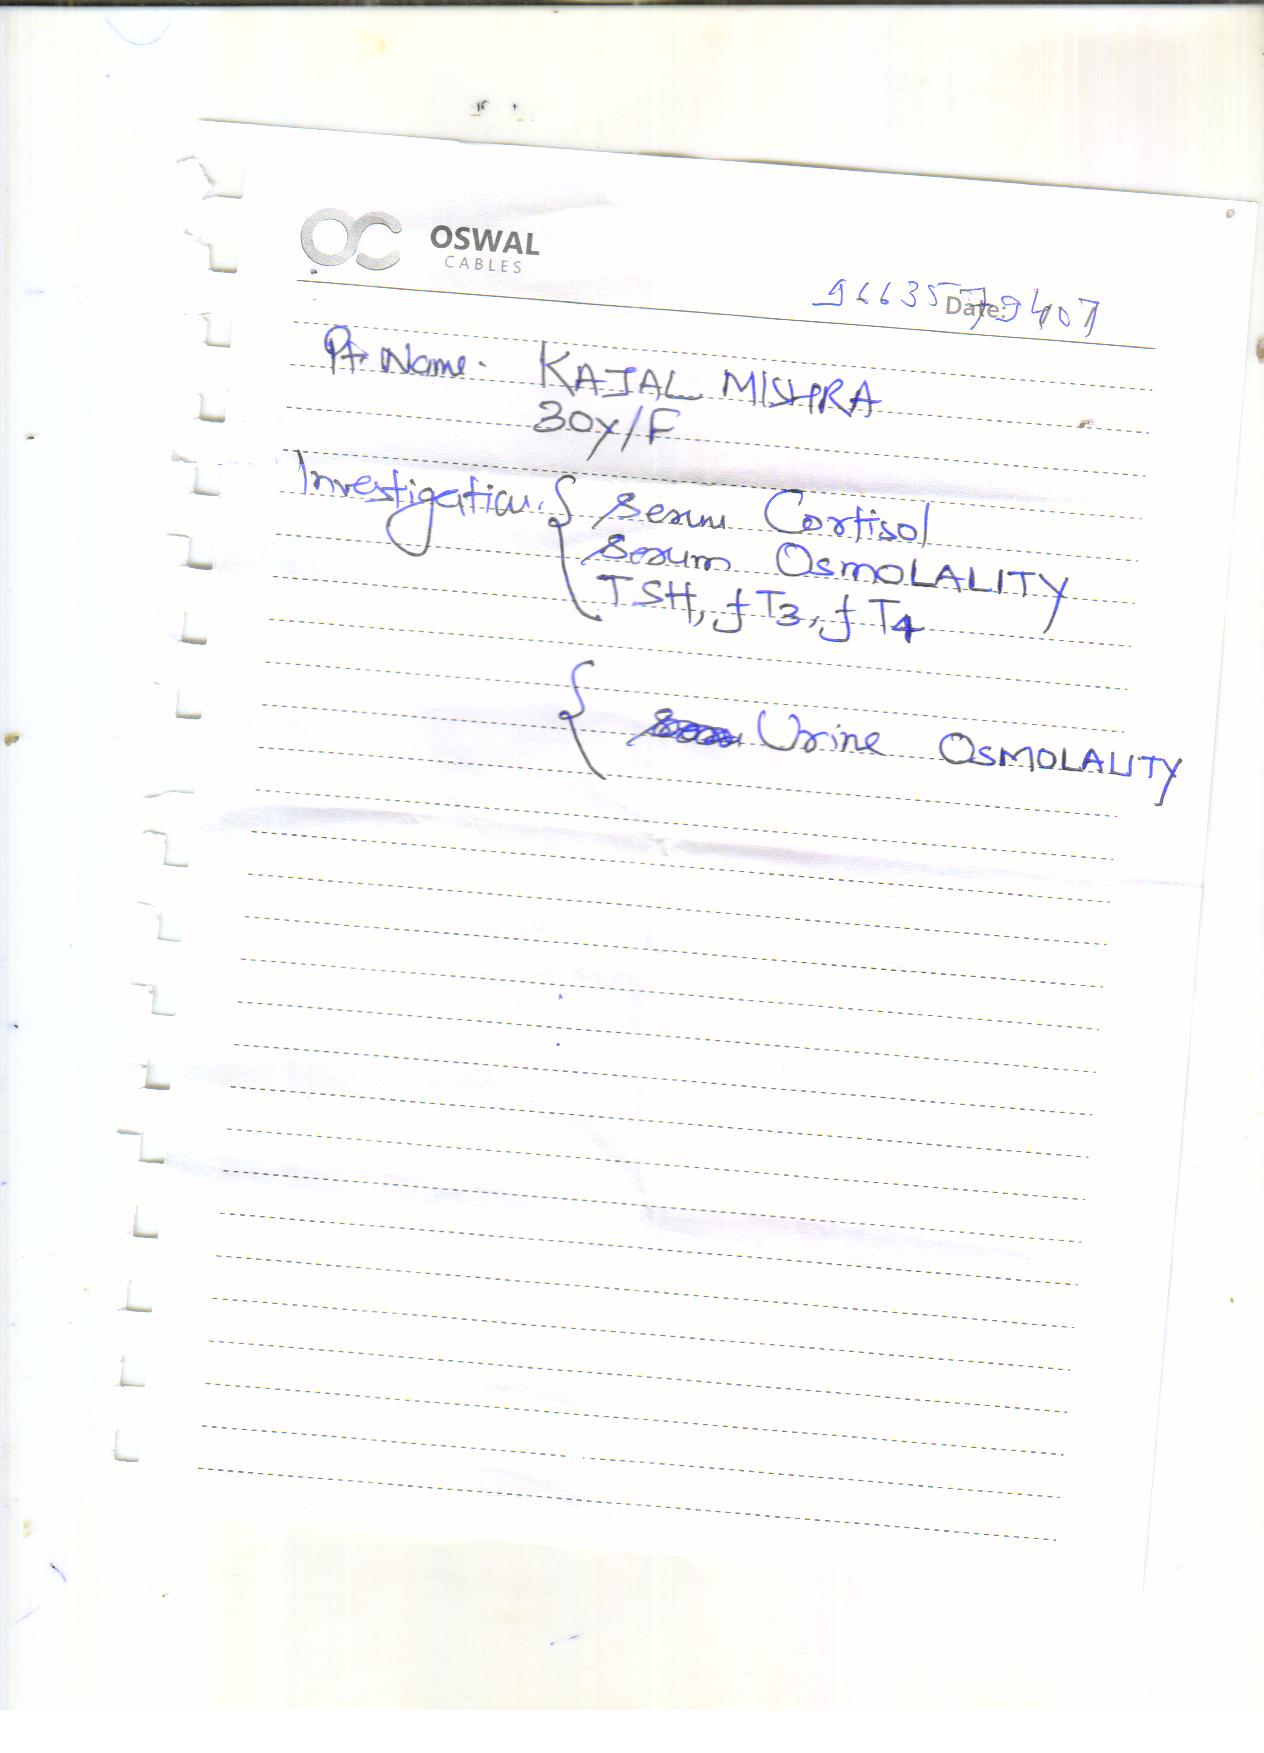 OC OSWAL
CABLES
Date:
9663579407
Pt Name. KAJAL MISHRA
30y/F
Investigation. { serum Cortisol
serum OsmoLALITY
TSH, fT3, fT4
{ Urine OSMOLALITY